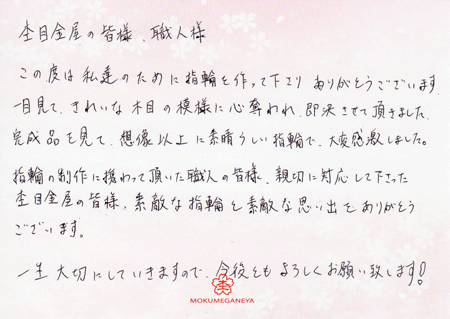 杢目金屋の皆様　職人様
この度は私達のために指輪を作って下さり ありがとうございます
一目見て、きれいな木目の模様に心奪われ、即決させて頂きました。
完成品を見て、想像以上に素晴らしい指輪で、大変感激しました。
指輪の制作に携わって頂いた職人の皆様、親切に対応して下さった
杢目金屋の皆様、素敵な指輪と素敵な思い出をありがとう
ございます。
一生大切にしていきますので、今後ともよろしくお願い致します!
MOKUMEGANEYA